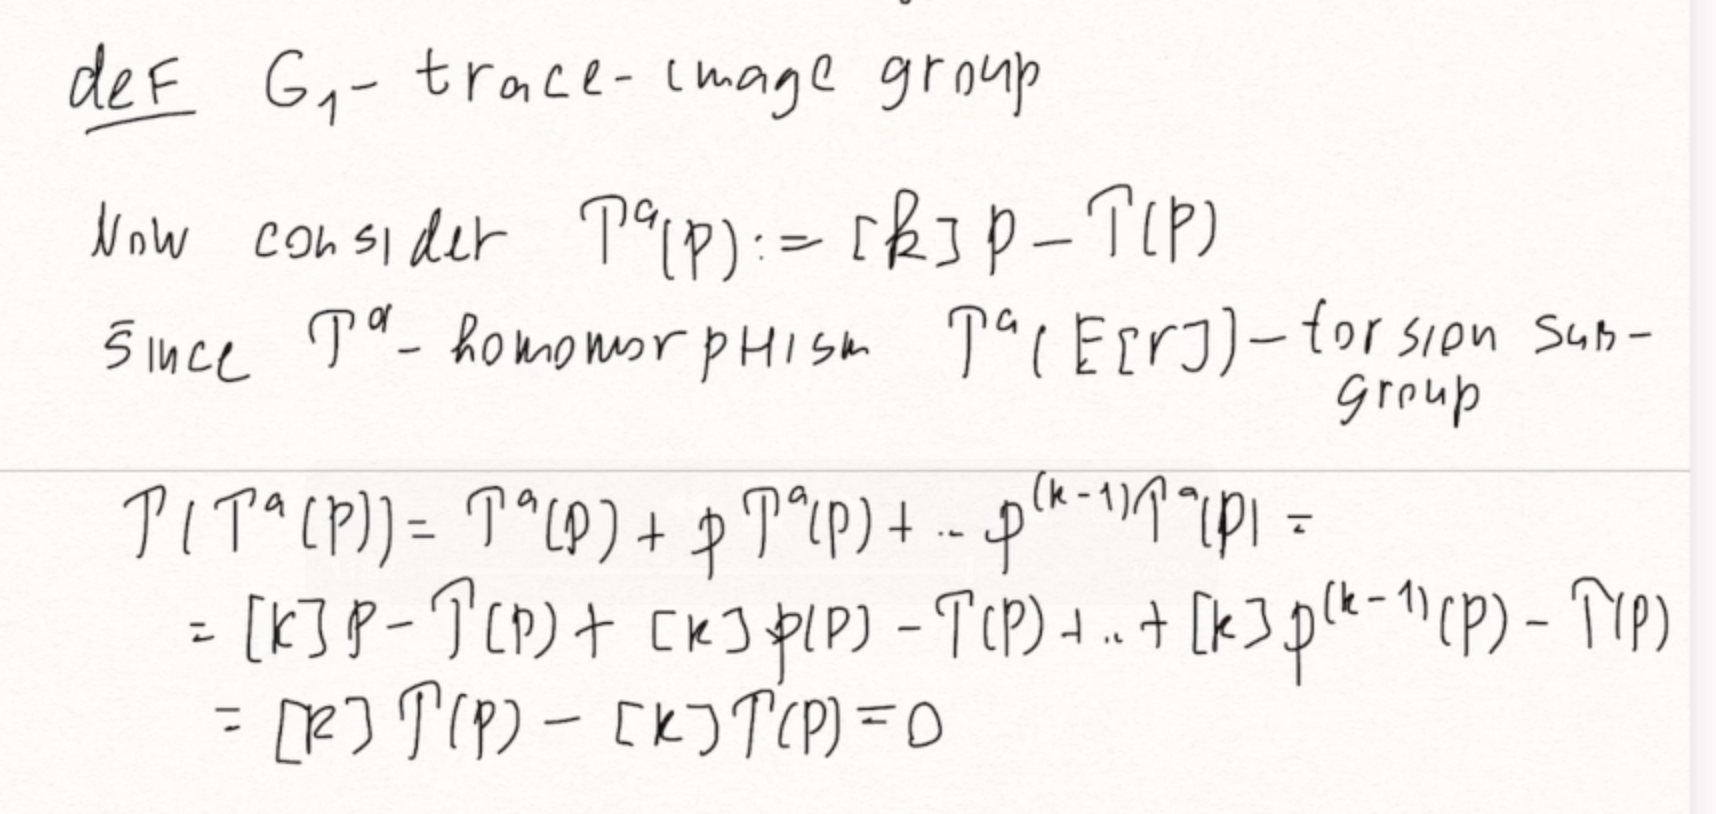 def G₁- trace-image group
Now consider Tᵃ(P):= [k]P - T(P)
Since Tᵃ- homomorpHism Tᵃ(E[r])- torsion sub-
group
T(Tᵃ(P)) = Tᵃ(P) + φTᵃ(P) + .. φ⁽ᵏ⁻¹⁾Tᵃ(P) =
= [k]P - T(P) + [k]φ(P) - T(P) + .. + [k]φ⁽ᵏ⁻¹⁾(P) - T(P)
= [k]T(P) - [k]T(P) = 0